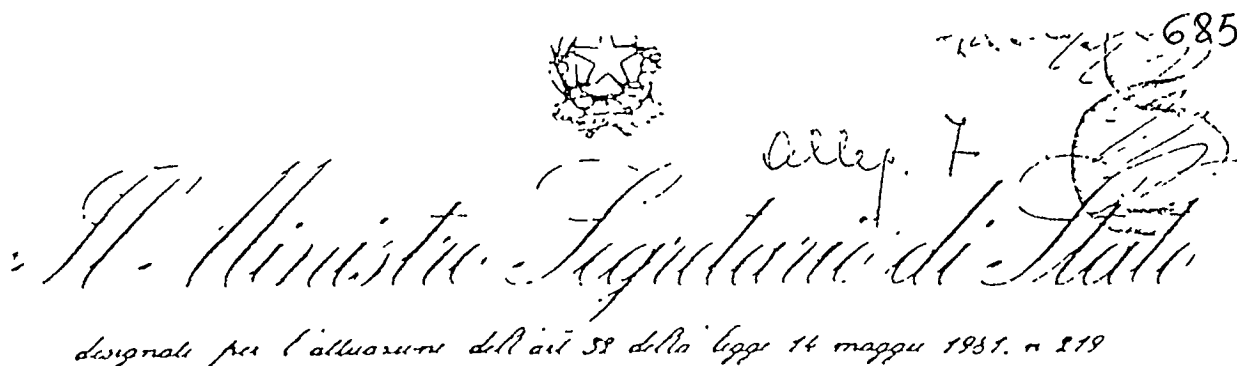 685
alleg. 7
Il Ministro Segretario di Stato
designato per l'attuazione dell'art 32 della legge 14 maggio 1981. n 219